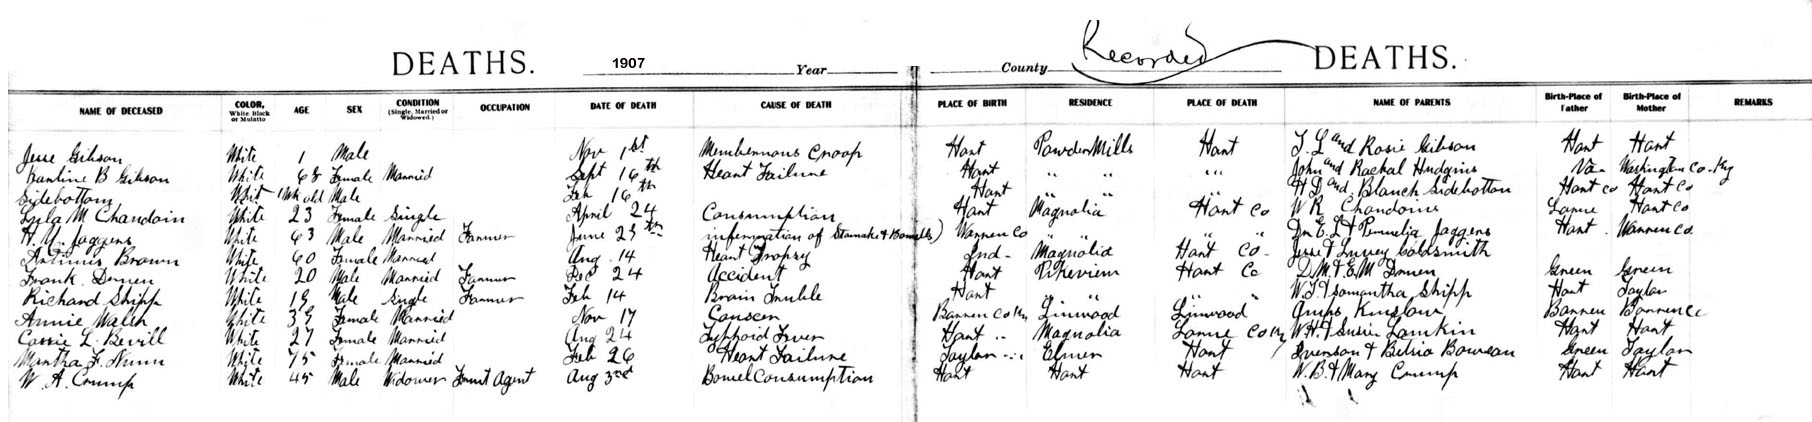 DEATHS. 1907 Year County Recorded DEATHS.
NAME OF DECEASED COLOR, White, Black or Mulatto AGE SEX CONDITION (Single, Married or Widowed.) OCCUPATION DATE OF DEATH CAUSE OF DEATH PLACE OF BIRTH RESIDENCE PLACE OF DEATH NAME OF PARENTS Birth-Place of Father Birth-Place of Mother REMARKS
Jesse Gibson White 1 Male Nov 1st Membernous Croop Hart Powder Mills Hart T. L and Rosie Gibson Hart Hart
B Gibson White 68 Female Married Sept 16th Heart Failure Hart " " " John and Rachal Hudgins Va- Washington Co. Ky
Sidebottom Whit 1 Wk old Male Feb 16th Hart " " H D and Blanch Sidebottom Hart co Hart Co
Lyla M Chaudoin White 23 Female Single April 24 Consumption Hart Magnolia Hart Co W R Chaudoins Larue Hart Co
H. Jaggers White 63 Male Married Farmer June of Stomake & Bowells) Warren Co " " Dr E. L & Permelia Jaggers Hart Warren Co.
Brown White 60 Female Married Aug. 14 Heart Dropsy Ind- Magnolia Hart Co- Jesse & Goldsmith
Frank. White 20 Male Married Farmer Dec 24 Accident Hart Pikeview Hart Co D. M. & E. M Green Green
Richard Shipp White 19 Male Single Farmer Feb 14 Brain Truble Hart " " " W. T. & Samantha Shipp Hart Taylor
Annie White Female Married Nov 17 Canscer Barren Co Ky Linwood Linwood Kinslow Barren Barren Co
Carrie L. Bevill White 27 Female Married Aug 24 Typhoid Fever Hart " Magnolia Larue Co Ky W. H. & Susie Lamkin Hart Hart
Martha F. Nunn White 75 Female Married Feb 26 Heart Failure Taylor Elmer Hart & Green Taylor
W. A. Crump White 45 Male Widower Agent Aug 3rd Bowel Consumption Hart Hart Hart W. B. & Mary Crump Hart Hart